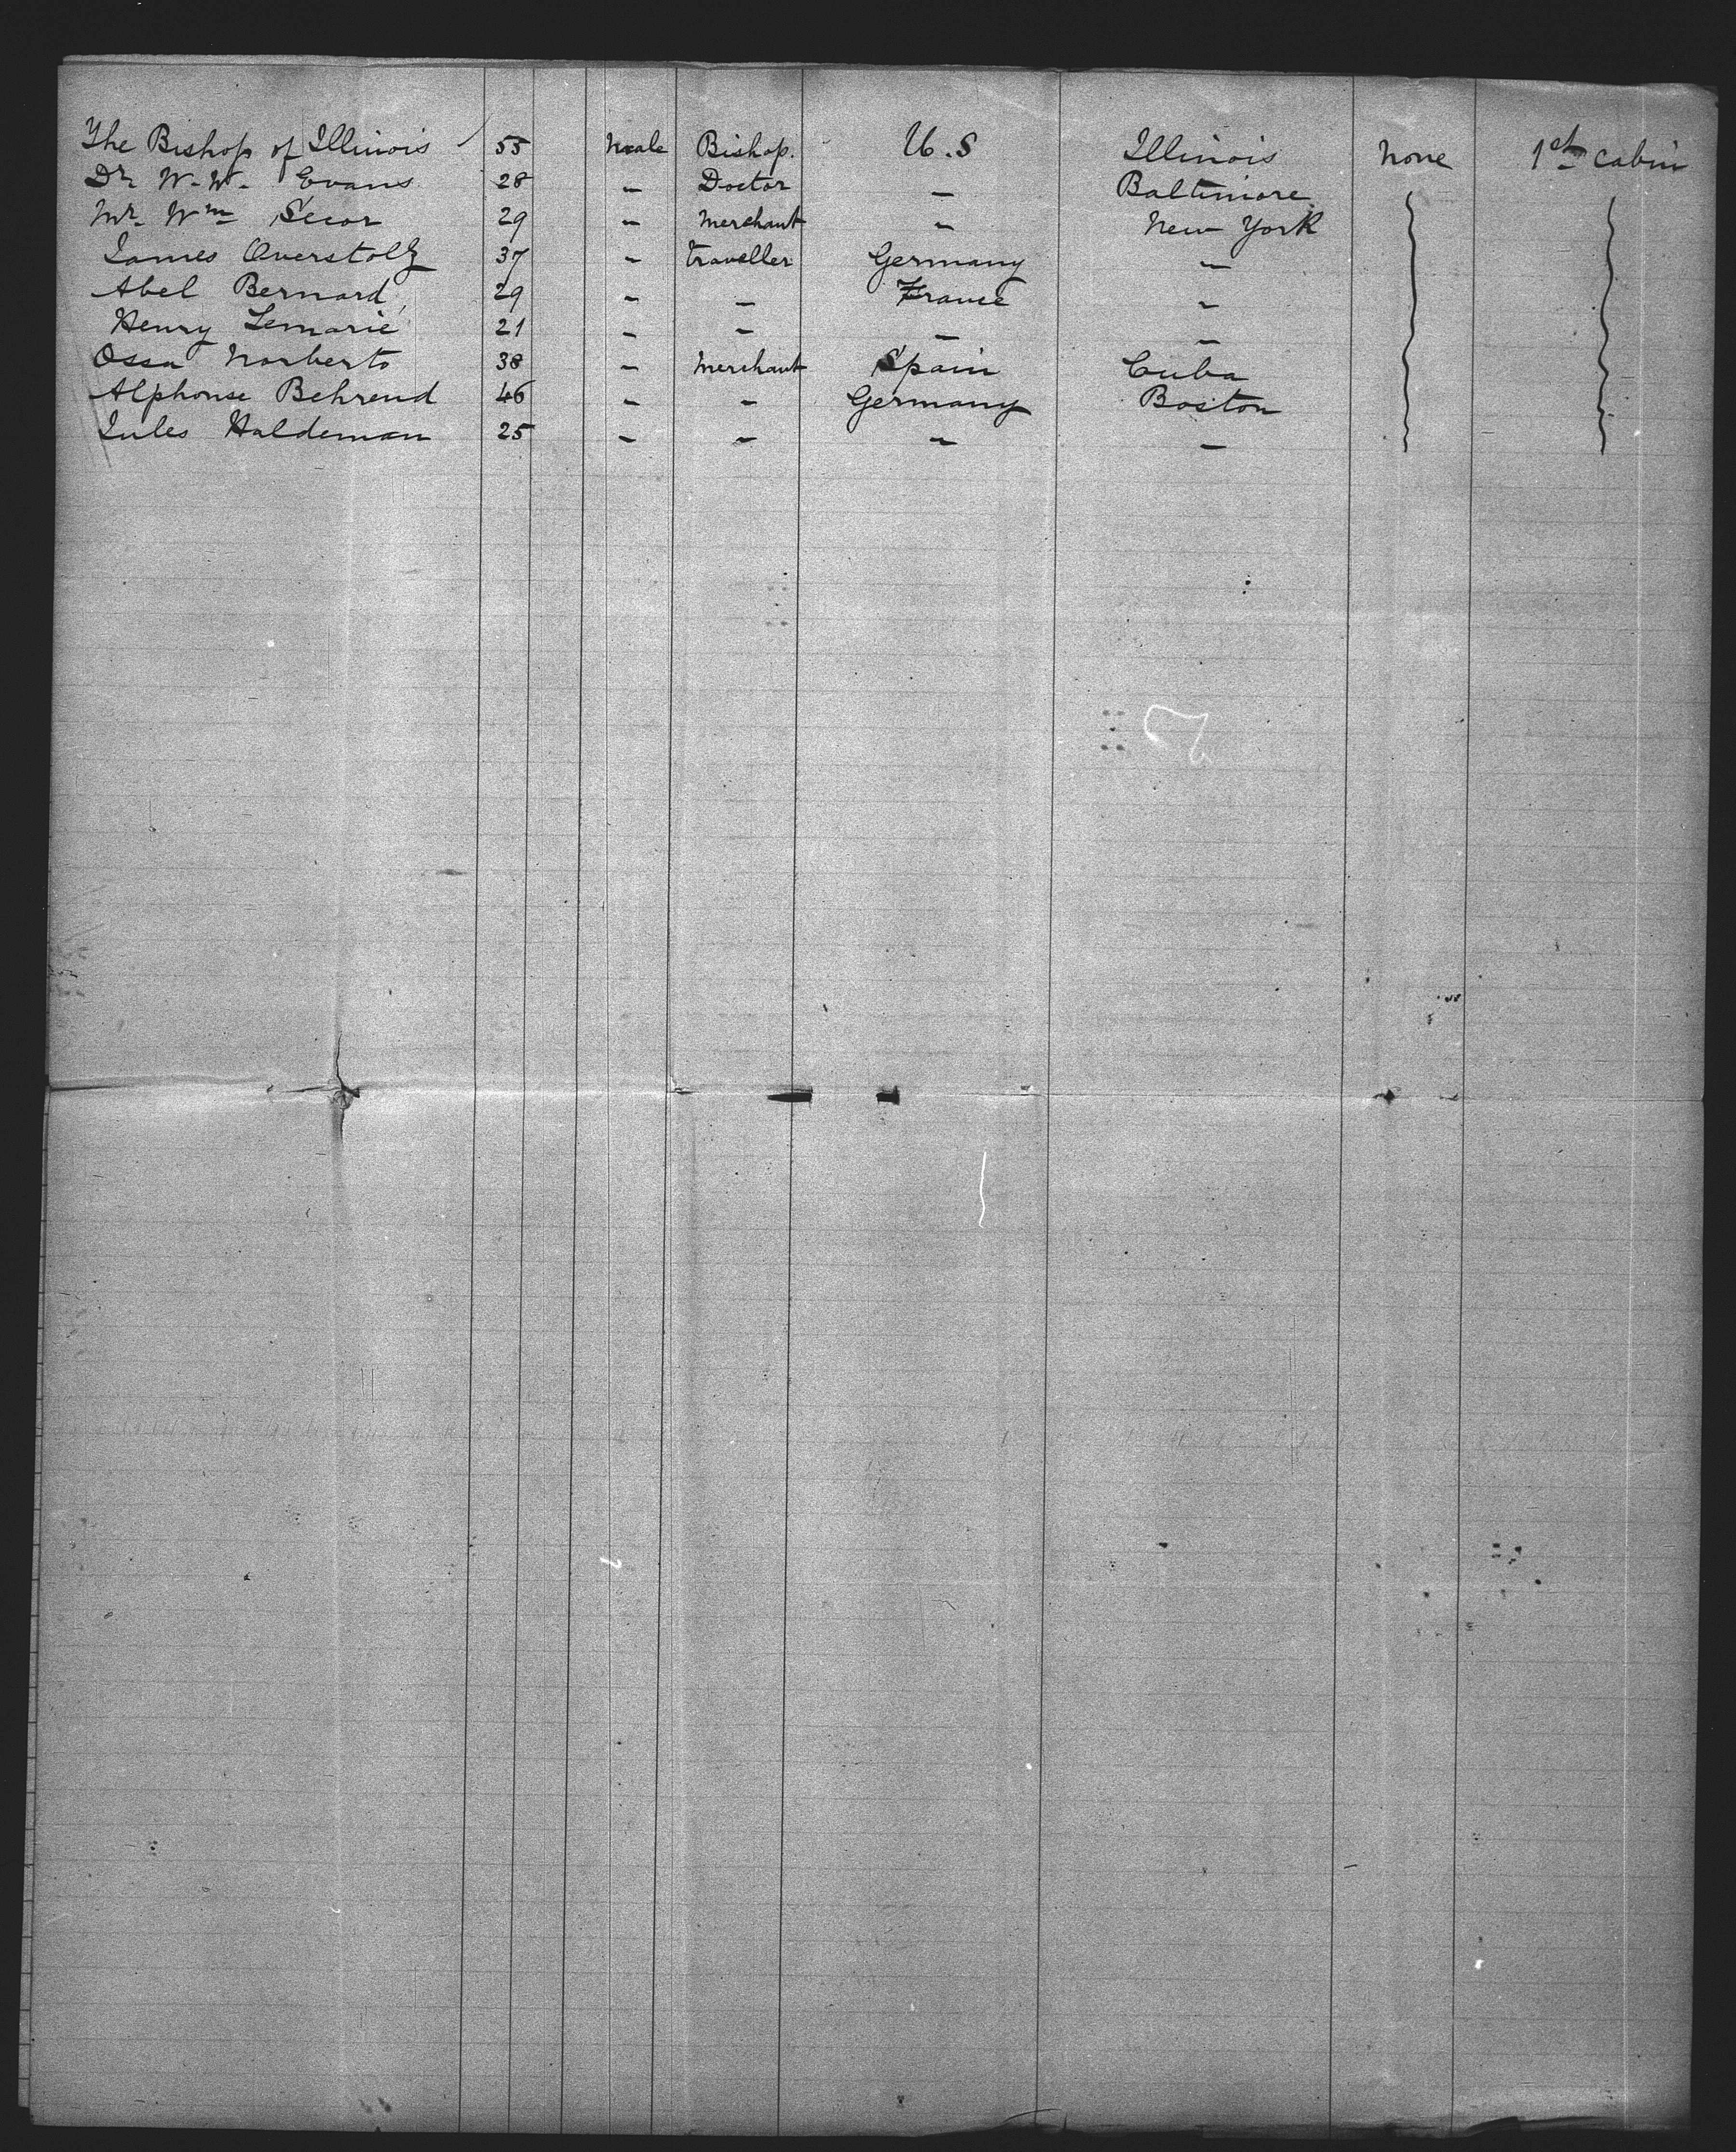 The Bishop of Illinois 55 Male Bishop. U.S Illinois None 1st Cabin
Dr W. W. Evans 28 – Doctor – Baltimore
Mr Wm Secor 29 – Merchant – New York
James Overstolz 37 – traveller Germany –
Abel Bernard 29 – – France –
Henry Lemarié 21 – – – –
Ossa Norberto 38 – Merchant Spain Cuba
Alphonse Behrend 46 – – Germany Boston
Jules Haldeman 25 – – – –